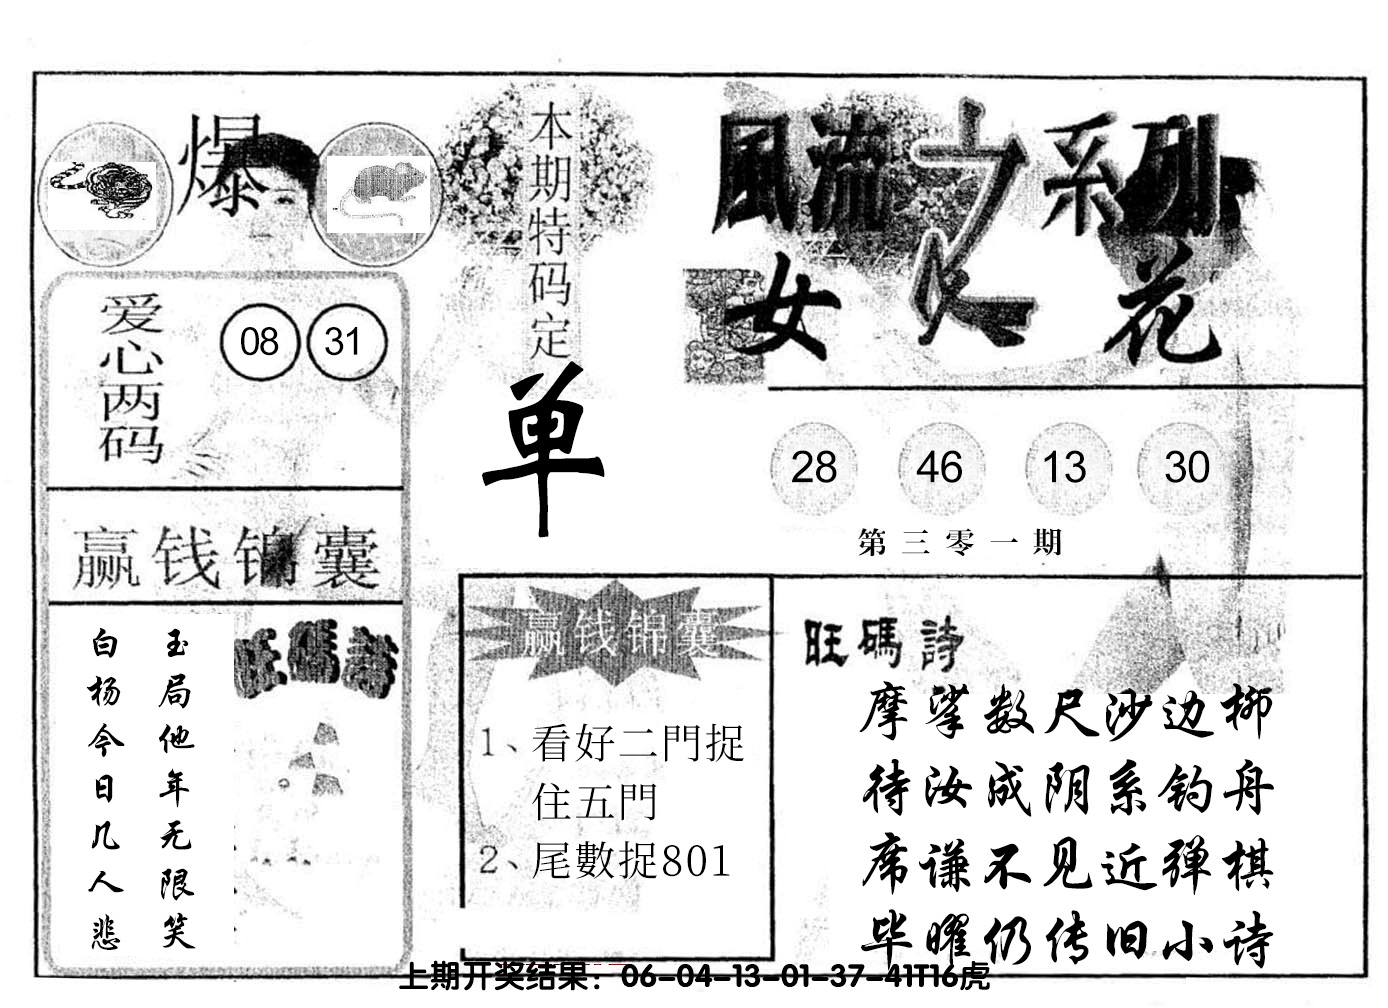 爆
本期特码定
单
風流之系列
女人花
爱心两码
08 31
28 46 13 30
第三零一期
赢钱锦囊
玉局他年无限笑
白杨今日几人悲
旺碼詩
赢钱锦囊
1、看好二門捉
住五門
2、尾數捉801
旺碼詩
摩挲数尺沙边柳
待汝成阴系钓舟
席谦不见近弹棋
毕曜仍传旧小诗
上期开奖结果：06-04-13-01-37-41T16虎